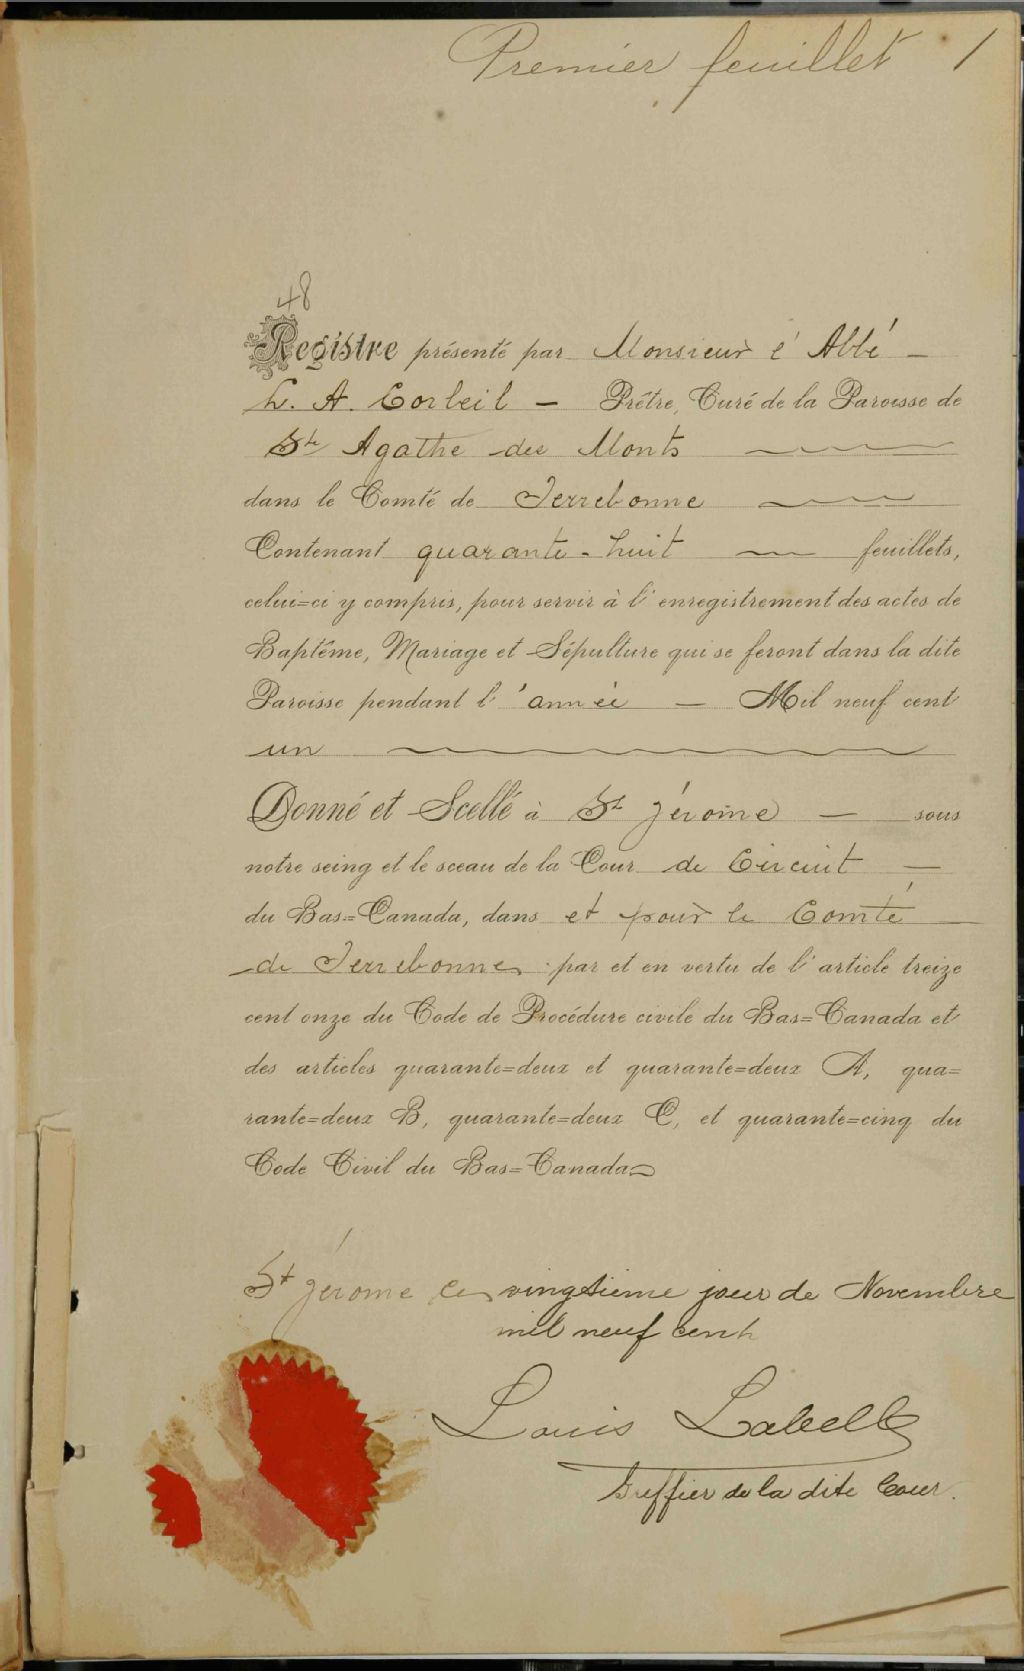 Premier feuillet 1
48
Registre présenté par Monsieur l'Abbé —
L. A. Corbeil — Prêtre, Curé de la Paroisse de
Ste Agathe des Monts
dans le Comté de Terrebonne
Contenant quarante-huit — feuillets,
celui=ci y compris, pour servir à l'enregistrement des actes de
Baptême, Mariage et Sépulture qui se feront dans la dite
Paroisse pendant l'année — Mil neuf cent
un
Donné et Scellé à St Jérome — sous
notre seing et le sceau de la Cour de Circuit —
du Bas=Canada, dans et pour le Comté
de Terrebonne par et en vertu de l'article treize
cent onze du Code de Procédure civile du Bas=Canada et
des articles quarante=deux et quarante=deux A, qua=
rante=deux B, quarante=deux C, et quarante=cinq du
Code Civil du Bas=Canada
St Jérome ce vingtième jour de Novembre
mil neuf cent
Louis Labelle
Greffier de la dite Cour.